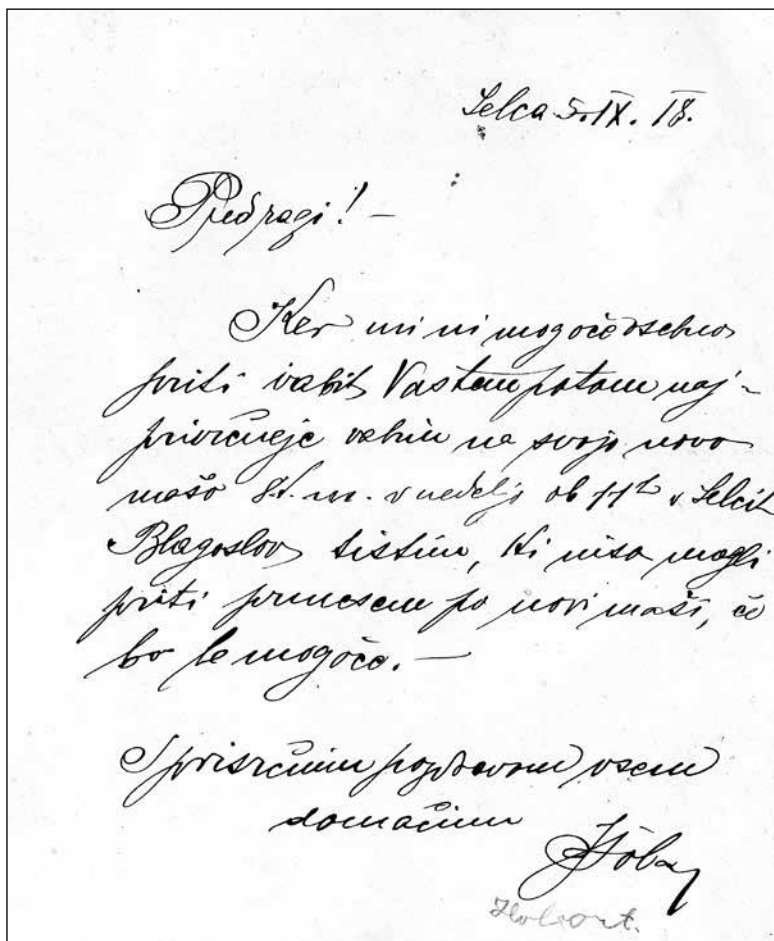 Selca 5. IX. 18.
Predragi! —
Ker mi ni mogoče osebno
priti vabit Vas tem potom naj-
prisrčneje vabim na svojo novo
mašo 8. t. m. v nedeljo ob 11h v Selcih
Blagoslov tistim, ki niso mogli
priti prinesem po novi maši, če
bo le mogoče. —
S prisrčnim pozdravom vsem
domačim